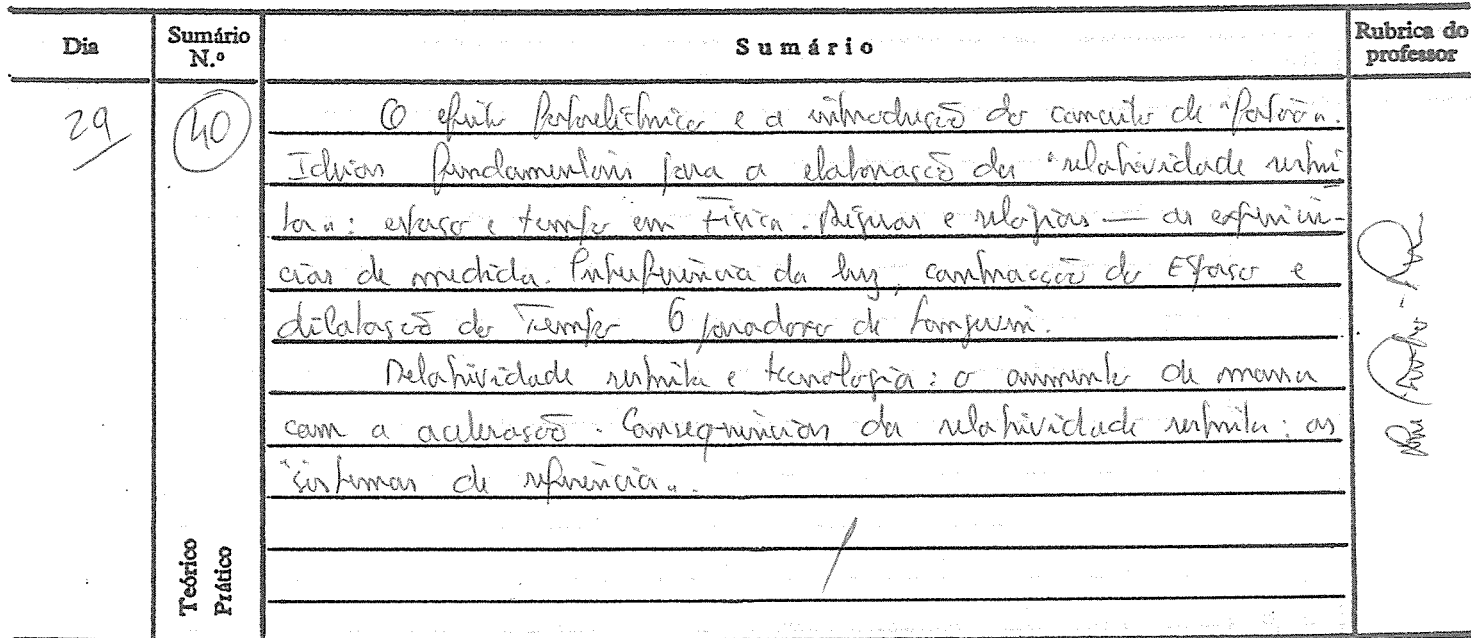 Dia
Sumário N.º
Sumário
Rubrica do professor
29
40
O efeito fotoeléctrico e a introdução do conceito de "fotão".
Ideias fundamentais para a elaboração da "relatividade restri
ta": espaço e tempo em Física. Réguas e relógios — as experiên-
cias de medida. Interferência da luz, contracção do Espaço e
dilatação do Tempo. O paradoxo de Langevin.
Relatividade restrita e tecnologia: o aumento de massa
com a aceleração. Consequências da relatividade restrita: os
"sistemas de referência".
Teórico
Prático